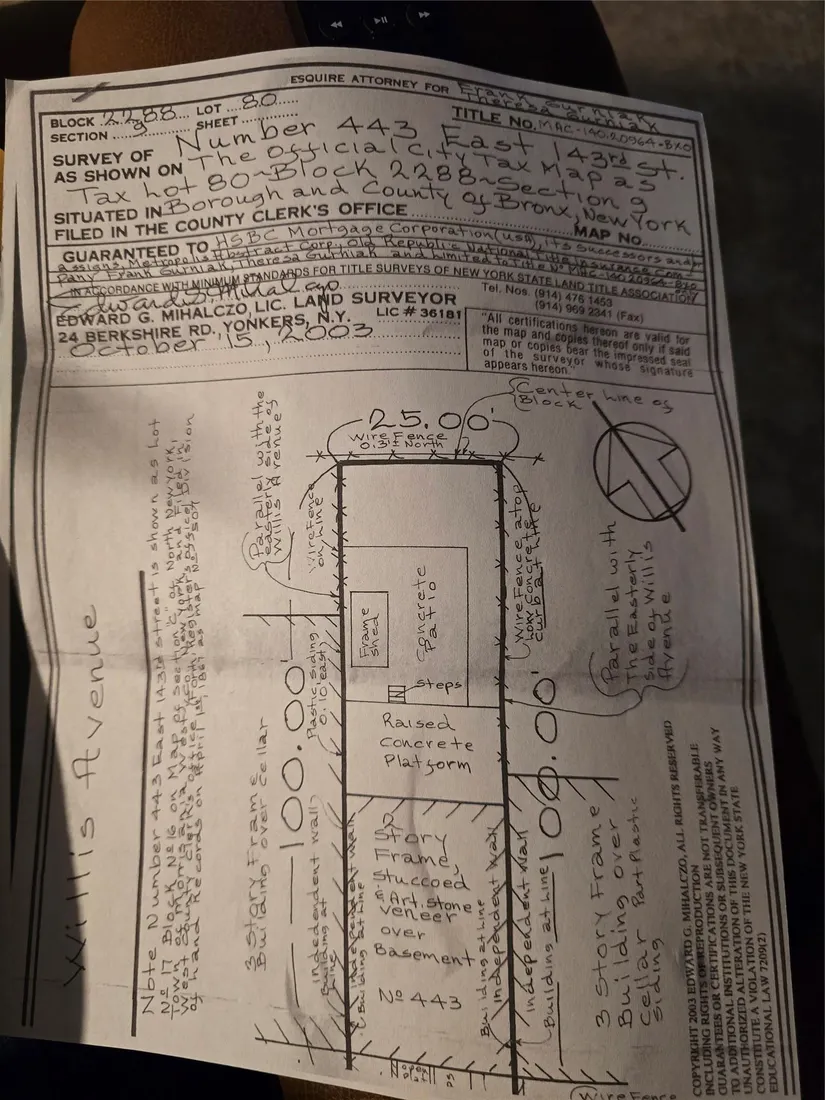 ESQUIRE ATTORNEY FOR Frank Gurniak
Theresa Gurniak
BLOCK 2288 LOT 80
SECTION 9 SHEET
TITLE NO. MAC-140.20964-BXO
SURVEY OF Number 443 East 143rd St.
AS SHOWN ON The Official City Tax Map as
Tax Lot 80~Block 2288~Section 9
SITUATED IN Borough and County of Bronx, New York
FILED IN THE COUNTY CLERK'S OFFICE MAP No.
GUARANTEED TO HSBC Mortgage Corporation (USA), its successors and/
assigns, Metropolis Abstract Corp, Old Republic National Title Insurance Com-
pany Frank Gurniak, Theresa Gurniak and Limited to Title No MAC-140.20964-BXO
IN ACCORDANCE WITH MINIMUM STANDARDS FOR TITLE SURVEYS OF NEW YORK STATE LAND TITLE ASSOCIATION
Edward G. Mihalczo
EDWARD G. MIHALCZO, LIC. LAND SURVEYOR
24 BERKSHIRE RD., YONKERS, N.Y. LIC # 36181
October 15, 2003
Tel. Nos. (914) 476 1453
(914) 969 2341 (Fax)
"All certifications hereon are valid for
the map and copies thereof only if said
map or copies bear the impressed seal
of the surveyor whose signature
appears hereon."
Center Line of
Block
25.00'
Wire Fence
0.3'± North
Parallel with the
easterly side of
Willis Avenue
Wire Fence
on Line
Wire Fence atop
low concrete
curb at line
Parallel with
The Easterly
side of Willis
Avenue
Concrete
Patio
Frame
shed
steps
Raised
Concrete
Platform
100.00'
Plastic siding
0.10 east
100.00'
Willis Avenue
Note Number 443 East 143rd street is shown as Lot
No 17 Block No 16 on Map of Section "C" of North New York,
Town of Morrisania, West
West County Clerk's office
of Land Records on April
3 Story Frame
Building over Cellar
independent wall
Building at
Line
Independent Wall
Building at Line
2
Story
Frame,
Stuccoed
& Art. stone
veneer
over
Basement
No 443
Building at Line
Independent Wall
Independent Wall
Building at Line
3 Story Frame
Building over
Cellar Part Plastic
siding
Wire Fence
COPYRIGHT 2003 EDWARD G. MIHALCZO, ALL RIGHTS RESERVED
INCLUDING RIGHTS OF REPRODUCTION
GUARANTEES OR CERTIFICATIONS ARE NOT TRANSFERABLE
TO ADDITIONAL INSTITUTIONS OR SUBSEQUENT OWNERS
UNAUTHORIZED ALTERATION OF THIS DOCUMENT IN ANY WAY
CONSTITUTE A VIOLATION OF THE NEW YORK STATE
EDUCATIONAL LAW 7209(2)